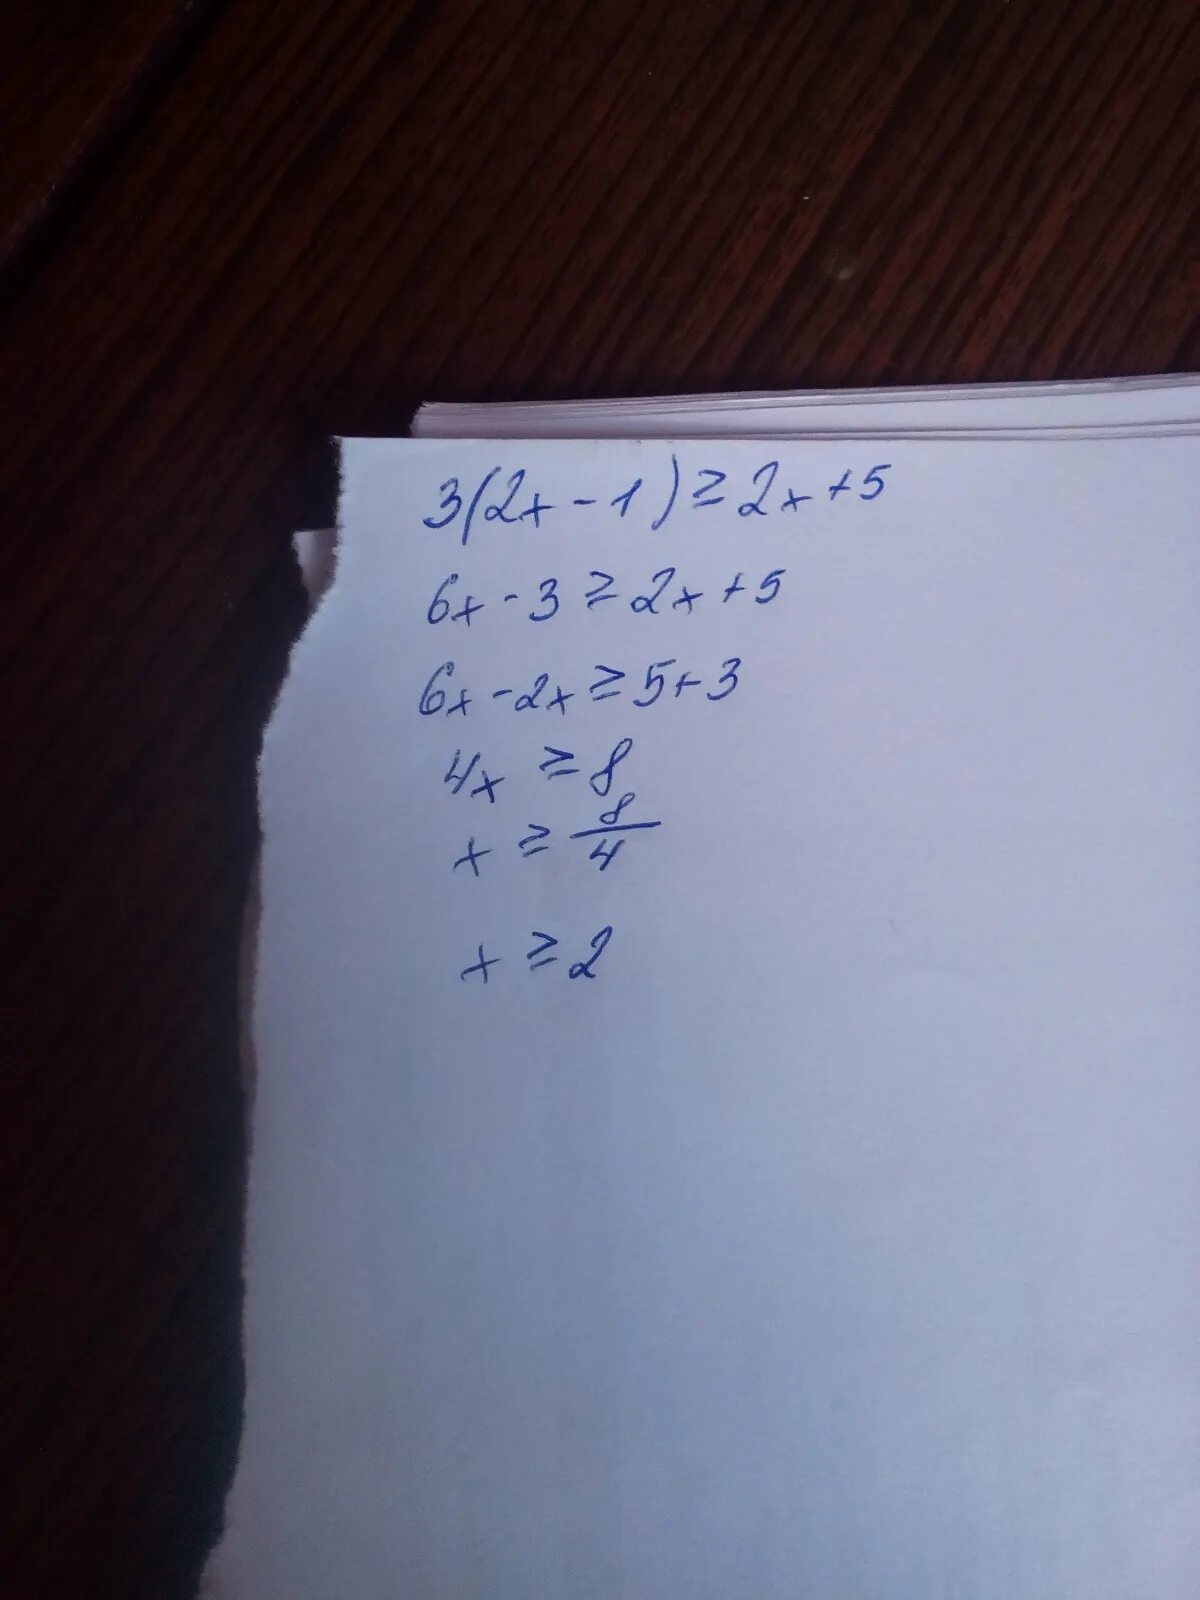 3(2x - 1) ≥ 2x + 5
6x - 3 ≥ 2x + 5
6x - 2x ≥ 5 + 3
4x ≥ 8
x ≥ 8/4
x ≥ 2